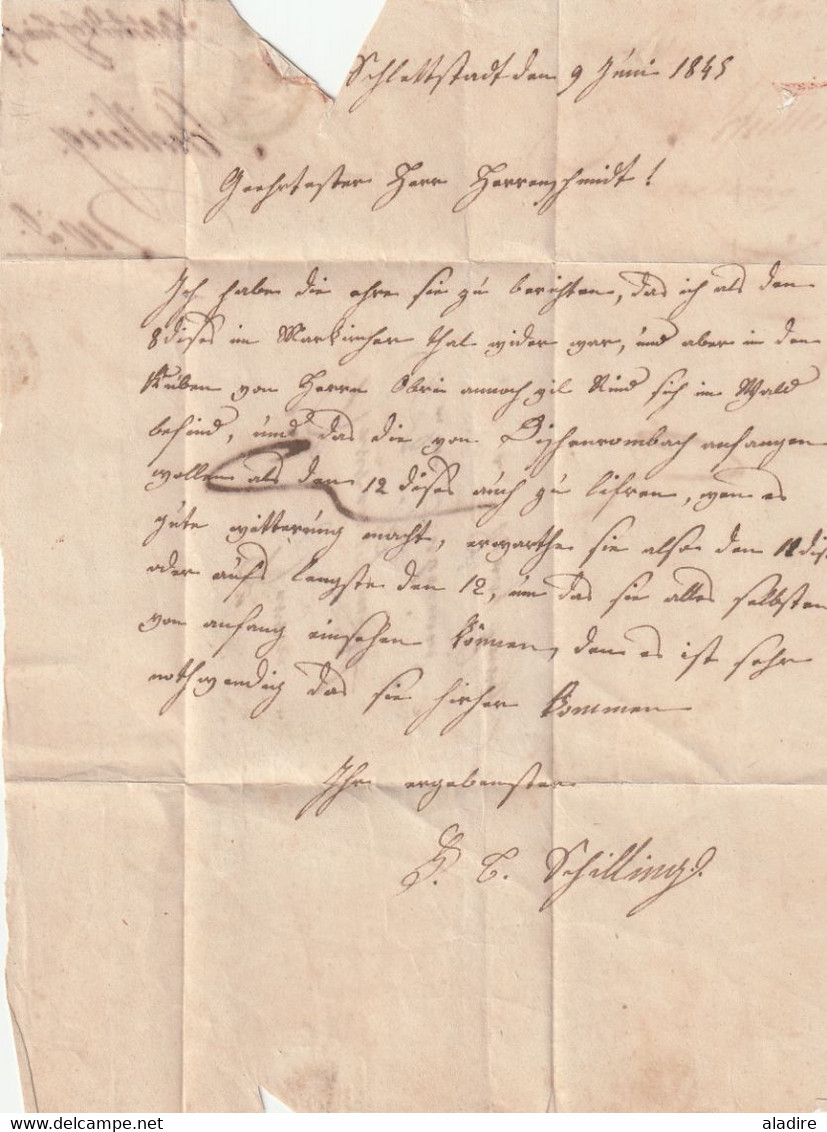 Schlettstadt den 9 Juni 1845
Geehrtester Herr Herrenschmidt!
Ich habe die ehre sie zu berichten, das ich als den
8 dises im Markircher thal wider war, und aber in den
von Herrn annoch vil Rind sich im Wald
befind, und das die von anfangen
wollen als den 12 dises auch zu lifren, wen es
gute witterung macht, erwarthe sie also den 11 dis
oder aufs längste den 12, um das sie alles selbsten
von anfang einsehen können, den es ist sehr
nothwendig das sie hirher kommen
Ihr ergebenster
Schilling
© aladire
delcampe.net